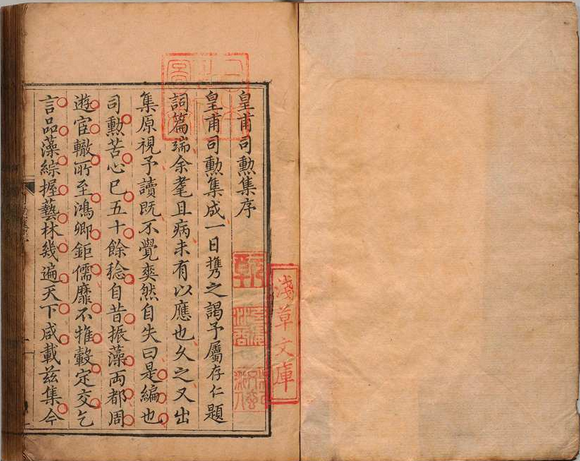 皇甫司勲集序
皇甫司勲集成一日攜之謁予屬存仁題
詞篇端余耄且病未有以應也久之又出
集原視予讀既不覺爽然自失曰是編也
司勲苦心巳五十餘稔自昔振藻兩都周
遊宦轍所至鴻卿鉅儒靡不推轂定交乞
言品藻綜握藝林幾遍天下咸載兹集今
淺草文庫